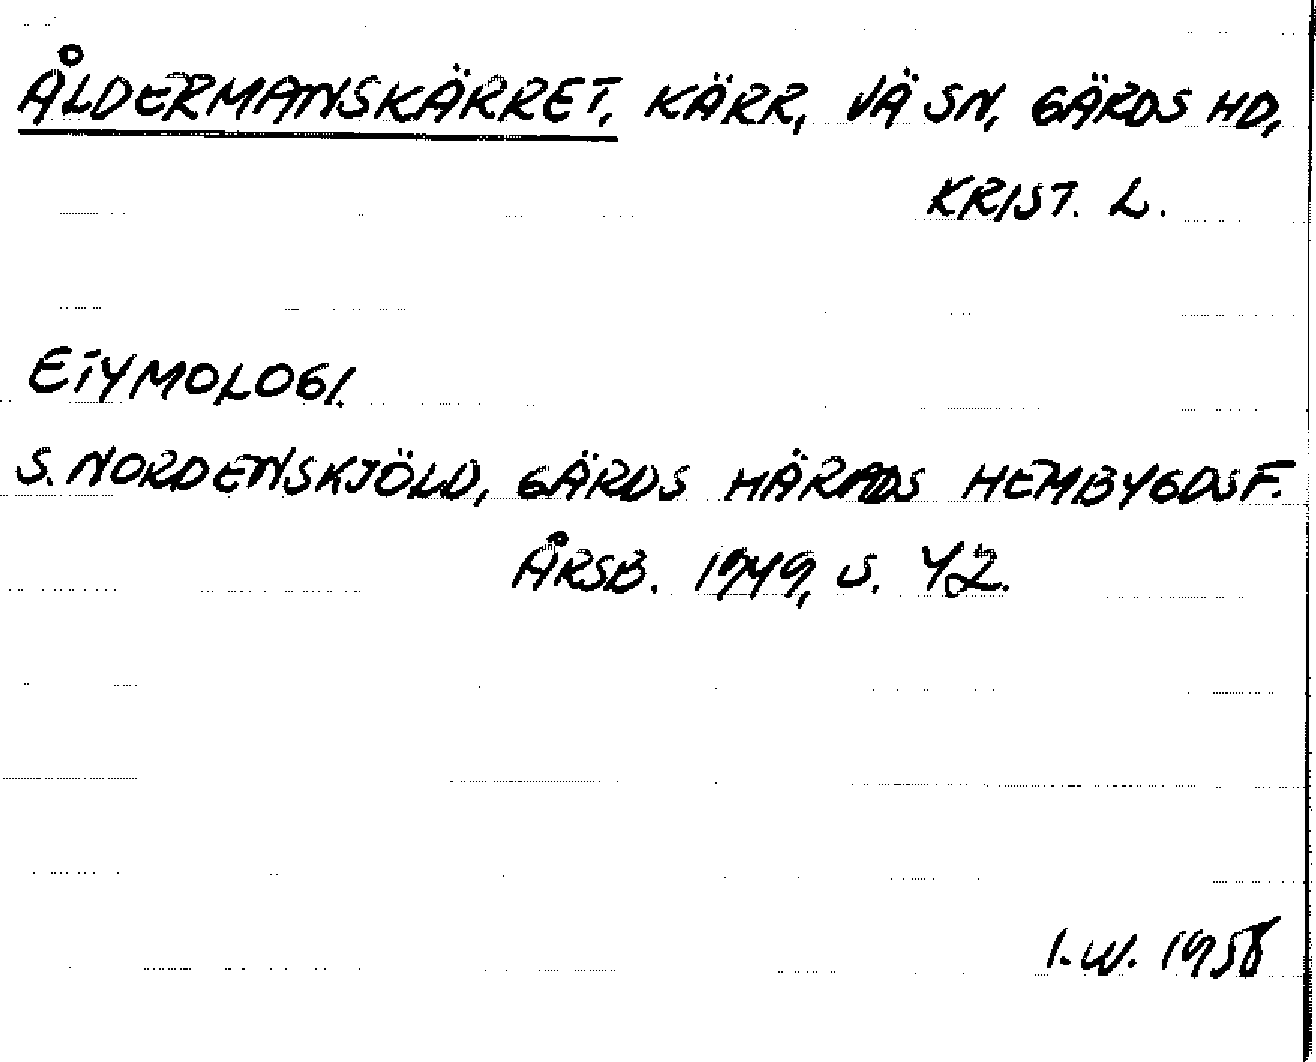 ÅLDERMANSKÄRRET, KÄRR, VÄ SN, GÄRDS HD,
KRIST. L.
ETYMOLOGI.
S. NORDENSKJÖLD, GÄRDS HÄRADS HEMBYGDSF.
ÅRSB. 1949, S. 42.
I.W. 1958